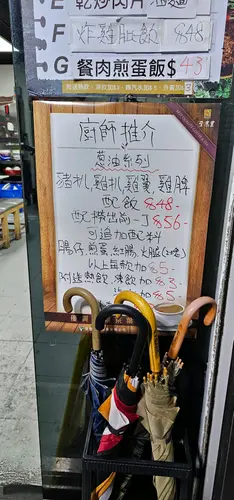 E 乾炒肉片
F 炸雞肶飯 $48
G 餐肉煎蛋飯$43
廚師推介
蔥油系列
豬扒,雞扒,雞翼,雞脾
配飯 $48-
配撈出前一丁 $56-
可追加配料
腸仔,煎蛋,紅腸,火腿
以上每款加 $5-
附送熱飲,凍飲加 $3-
加 $5-